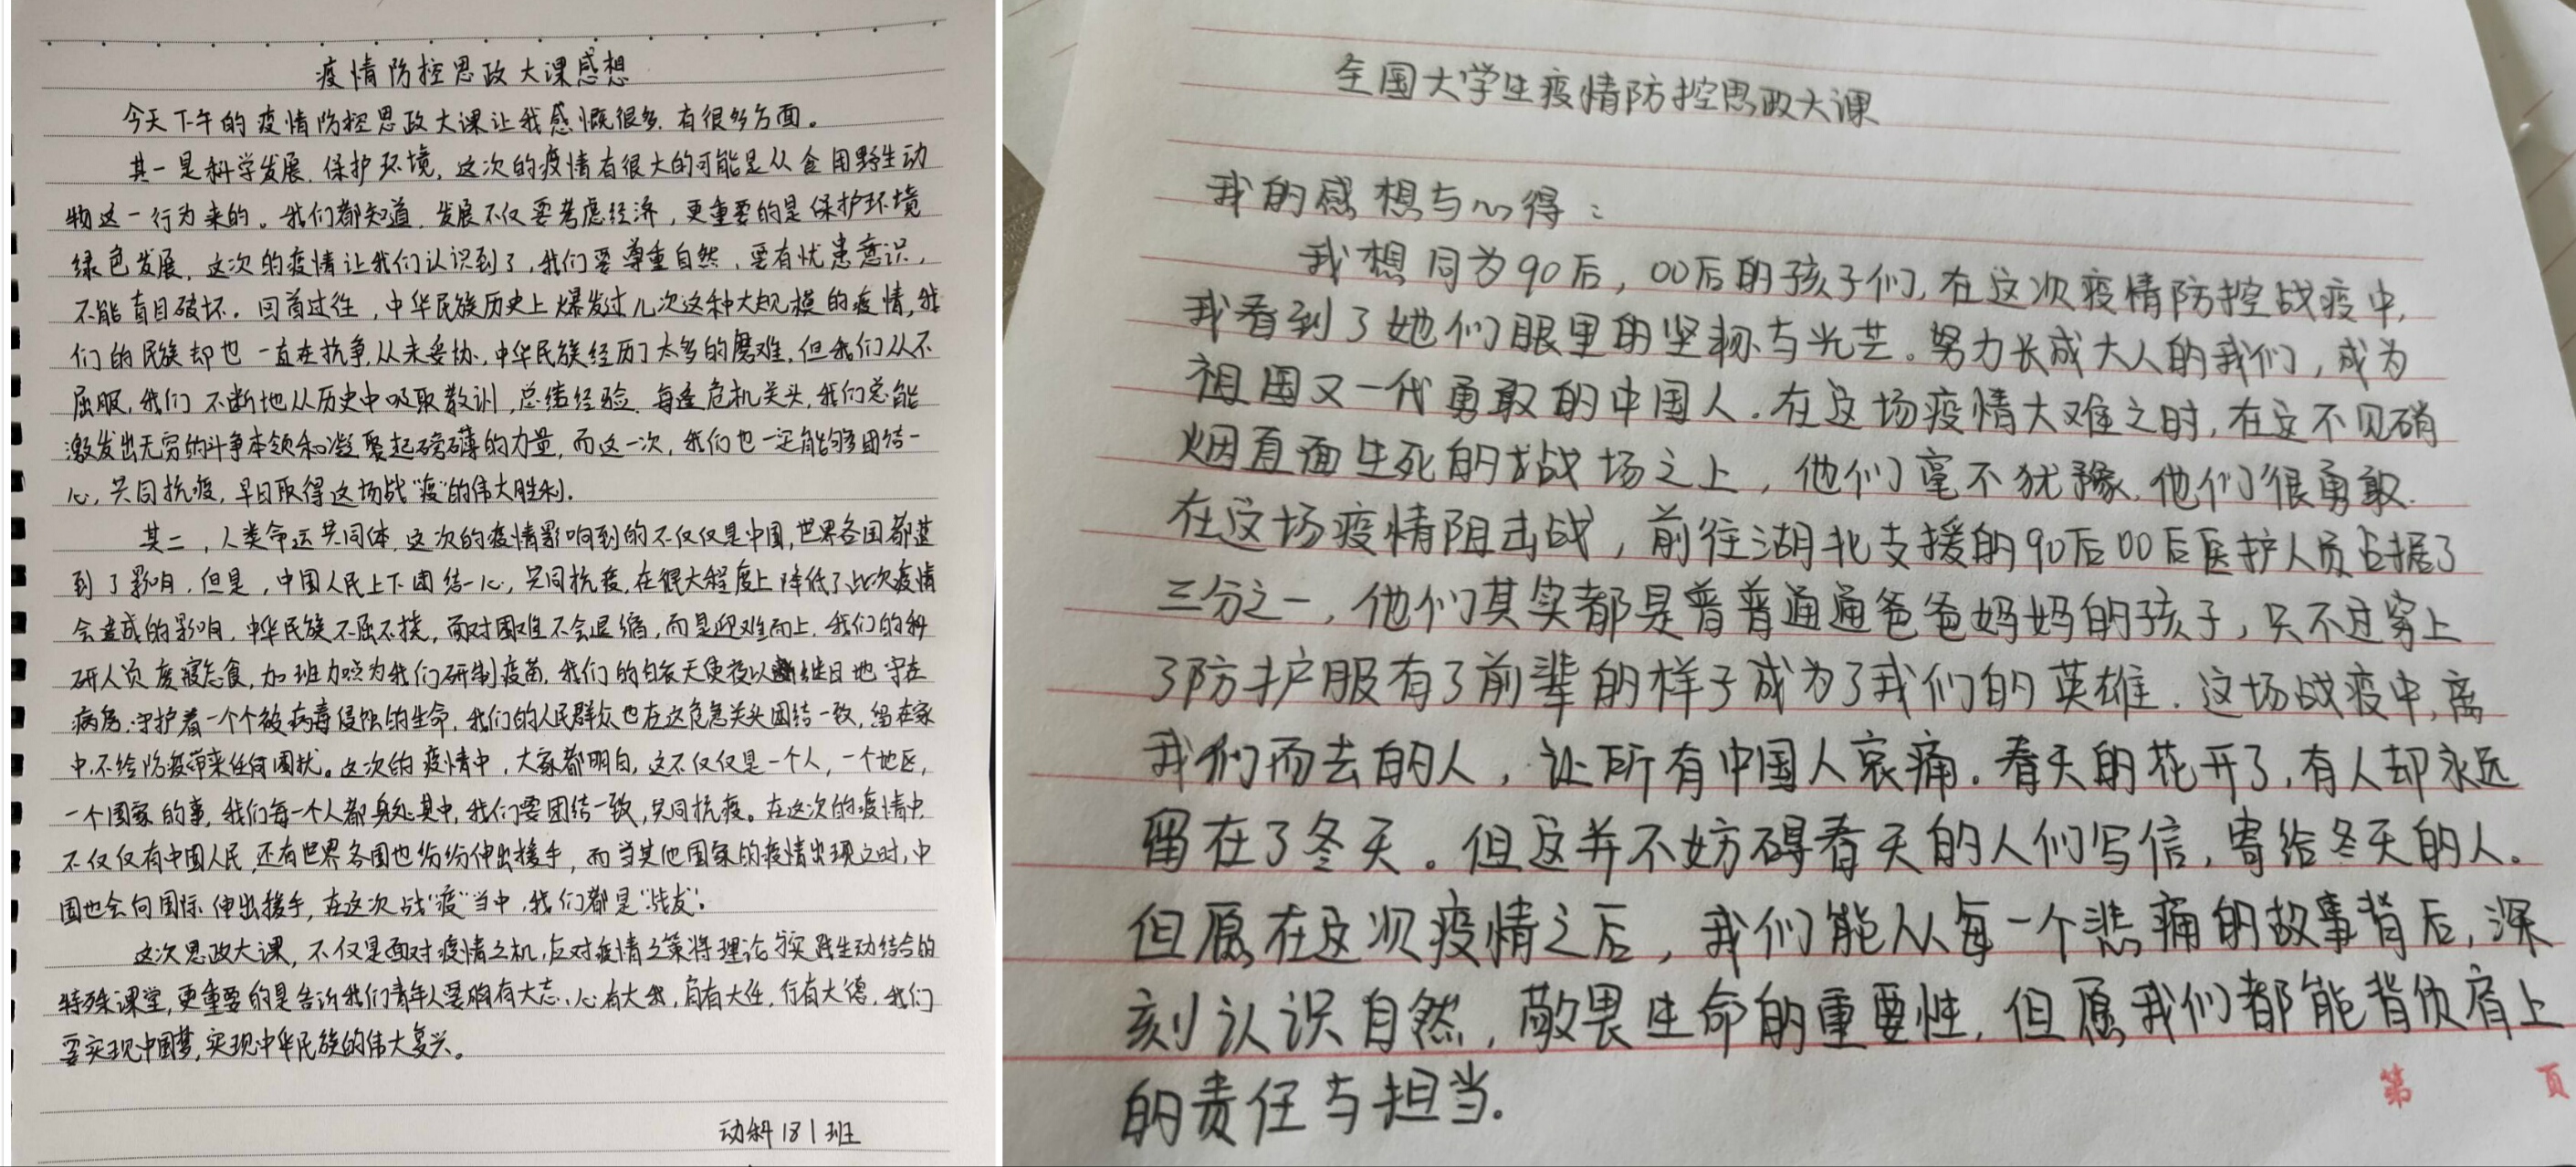 疫情防控思政大课感想
今天下午的疫情防控思政大课让我感慨很多,有很多方面。
其一是科学发展,保护环境,这次的疫情有很大的可能是从食用野生动
物这一行为来的。我们都知道,发展不仅要考虑经济,更重要的是保护环境
绿色发展,这次的疫情让我们认识到了,我们要尊重自然,要有忧患意识,
不能盲目破坏。回首过往,中华民族历史上爆发过几次这种大规模的疫情,我
们的民族却也一直在抗争,从未妥协,中华民族经历了太多的磨难,但我们从不
屈服,我们不断地从历史中吸取教训,总结经验,每逢危机关头,我们总能
激发出无穷的斗争本领和凝聚起磅礴的力量,而这一次,我们也一定能够团结一
心,共同抗疫,早日取得这场战“疫”的伟大胜利.
其二,人类命运共同体,这次的疫情影响到的不仅仅是中国,世界各国都遭
到了影响,但是,中国人民上下团结一心,共同抗疫,在很大程度上降低了此次疫情
会造成的影响,中华民族不屈不挠,面对困难不会退缩,而是迎难而上,我们的科
研人员废寝忘食,加班加点为我们研制疫苗,我们的白衣天使夜以继日地守在
病房,守护着一个个被病毒侵蚀的生命,我们的人民群众也在这危急关头团结一致,留在家
中,不给防疫带来任何困扰。这次的疫情中,大家都明白,这不仅仅是一个人,一个地区,
一个国家的事,我们每一个人都身处其中,我们要团结一致,共同抗疫。在这次的疫情中,
不仅仅有中国人民,还有世界各国也纷纷伸出援手,而当其他国家的疫情出现之时,中
国也会向国际伸出援手,在这次战“疫”当中,我们都是“战友”.
这次思政大课,不仅是面对疫情之机,应对疫情之策将理论与实践生动结合的
特殊课堂,更重要的是告诉我们青年人要胸有大志,心有大我,肩有大任,行有大德,我们
要实现中国梦,实现中华民族的伟大复兴。
动科181班
全国大学生疫情防控思政大课
我的感想与心得:
我想同为90后,00后的孩子们,在这次疫情防控战疫中,
我看到了她们眼里的坚韧与光芒。努力长成大人的我们,成为
祖国又一代勇敢的中国人.在这场疫情大难之时,在这不见硝
烟直面生死的战场之上,他们毫不犹豫,他们很勇敢.
在这场疫情阻击战,前往湖北支援的90后00后医护人员占据了
三分之一,他们其实都是普普通通爸爸妈妈的孩子,只不过穿上
了防护服有了前辈的样子成为了我们的英雄.这场战疫中,离
我们而去的人,让所有中国人哀痛.春天的花开了,有人却永远
留在了冬天。但这并不妨碍春天的人们写信,寄给冬天的人。
但愿在这次疫情之后,我们能从每一个悲痛的故事背后,深
刻认识自然,敬畏生命的重要性,但愿我们都能背负肩上
的责任与担当.
第 页